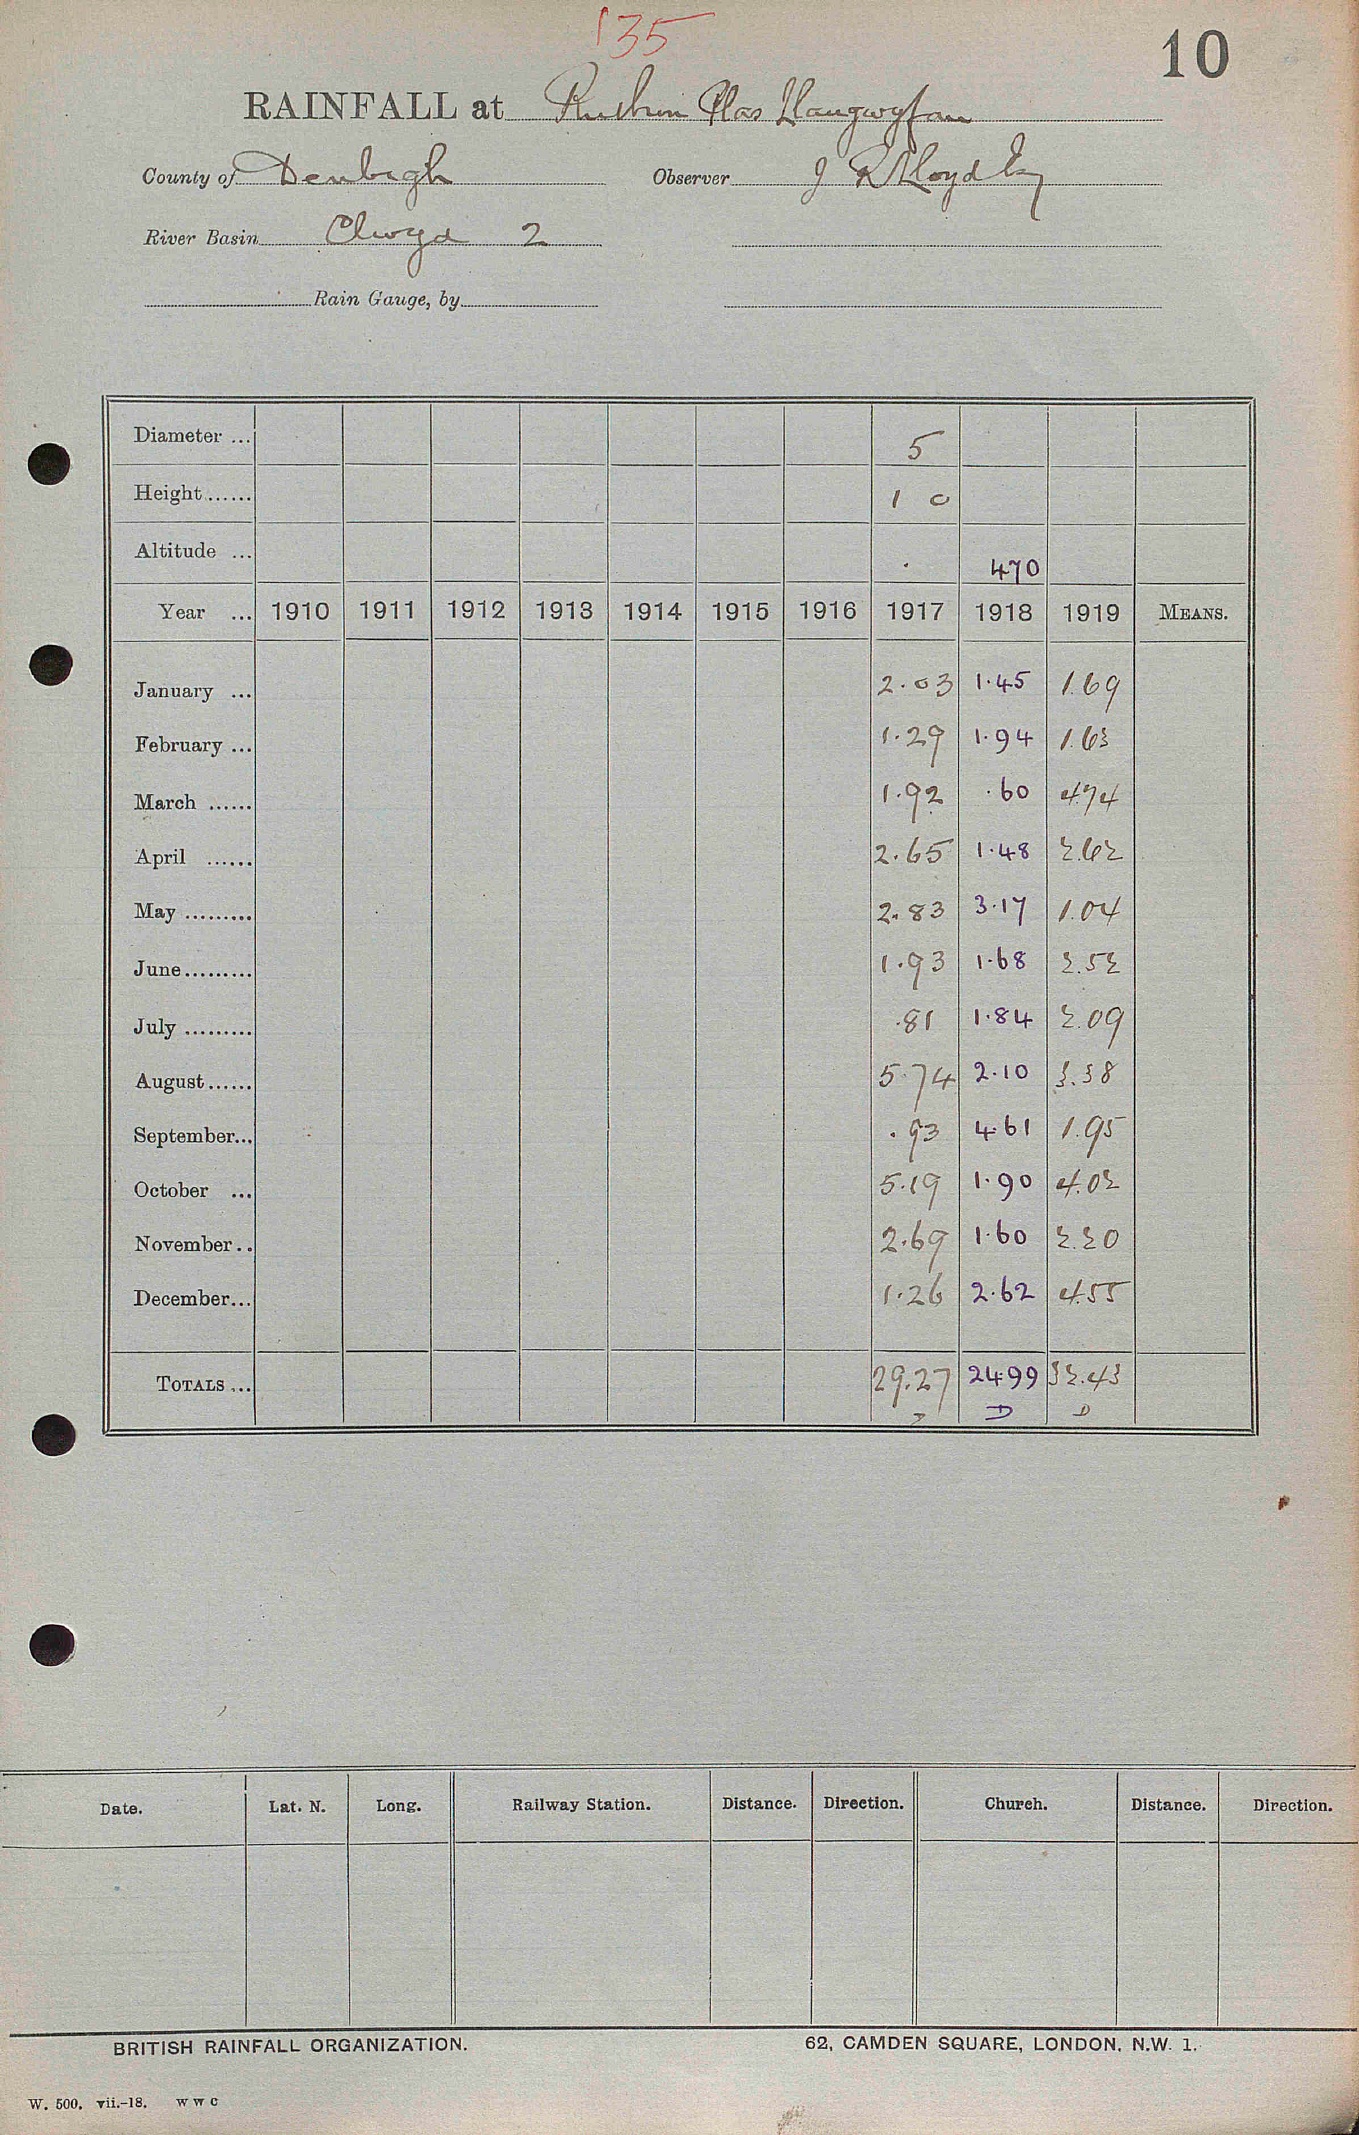 135
10
RAINFALL at Ruthin Plas Llangwyfan
County of Denbigh Observer J R Lloyd Esq
River Basin Clwyd 2
Rain Gauge, by
Diameter ... 5
Height ...... 1 0
Altitude ... 470
Year ... 1910 1911 1912 1913 1914 1915 1916 1917 1918 1919 MEANS.
January ... 2.03 1.45 1.69
February ... 1.29 1.94 1.63
March ...... 1.92 .60 4.74
April ...... 2.65 1.48 2.62
May ......... 2.83 3.17 1.04
June ......... 1.93 1.68 2.52
July ......... .81 1.84 2.09
August ...... 5.74 2.10 3.38
September ... .93 4.61 1.95
October ... 5.19 1.90 4.02
November .. 2.69 1.60 2.20
December ... 1.26 2.62 4.55
TOTALS ... 29.27 24.99 32.43
D D D
Date. Lat. N. Long. Railway Station. Distance. Direction. Church. Distance. Direction.
BRITISH RAINFALL ORGANIZATION. 62, CAMDEN SQUARE, LONDON, N.W. 1.
W. 500. vii.–18. W W C